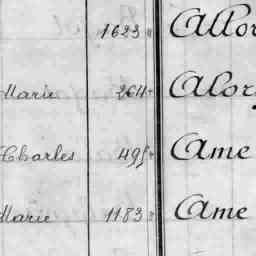 1623 Allor
Marie 264 Alor
Charles 495 Ame
Marie 1183 Ame